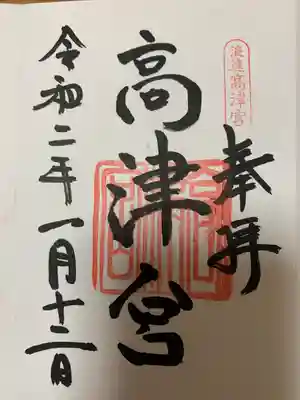 浪速高津宮
奉拝
高津宮
令和二年一月十二日